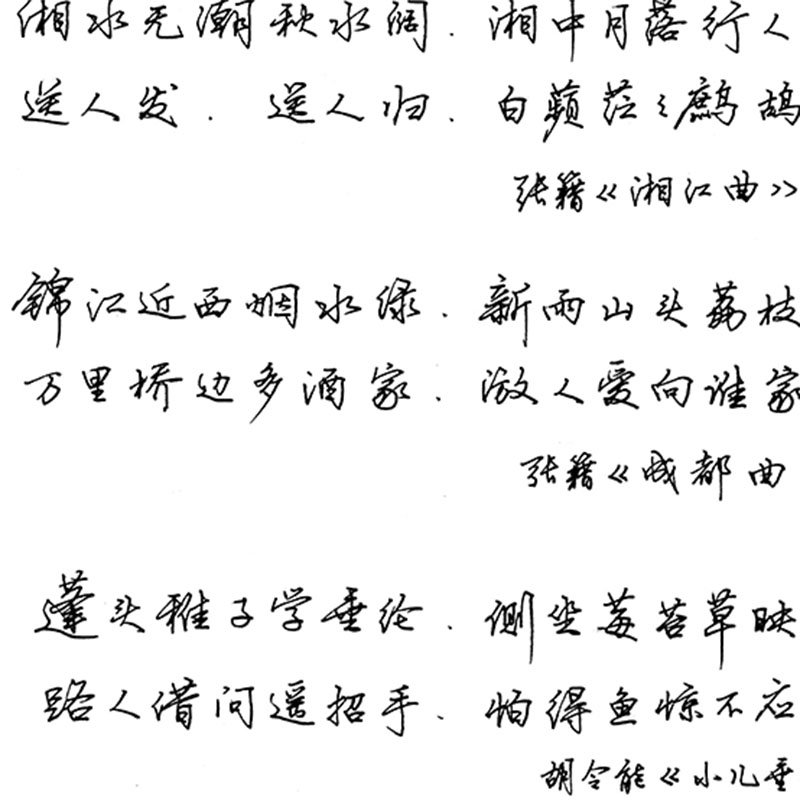 湘水无潮秋水阔.湘中月落行人
送人发.送人归.白蘋茫々鹧鸪
张籍《湘江曲》
锦江近西烟水绿.新雨山头荔枝
万里桥边多酒家.激人爱向谁家
张籍《成都曲
蓬头稚子学垂纶.侧坐莓苔草映
路人借问遥招手.怕得鱼惊不应
胡令能《小儿垂